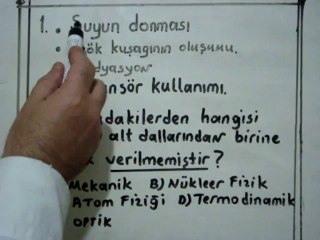 1. • Suyun donması
• kuşağının oluşumu.
kullanımı.
hangisi
alt dallarından birine
verilmemiştir?
Mekanik B) Nükleer Fizik
Atom Fiziği D) Termodinamik
Optik